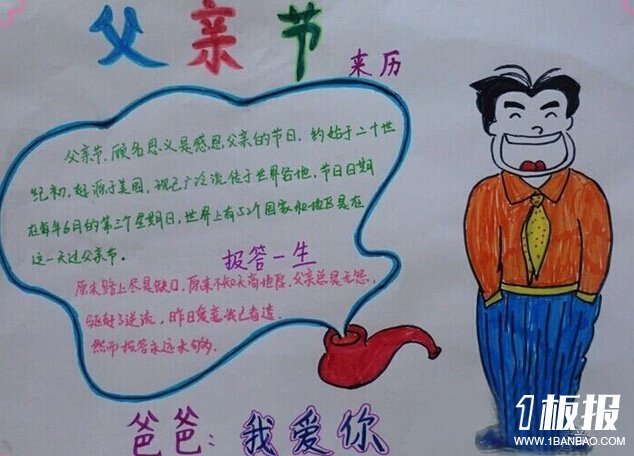 父亲节
来历
父亲节,顾名思义是感恩父亲的节日.约始于二十世
纪初,起源于美国,现已广泛流传于世界各地,节日日期
在每年6月的第三个星期日,世界上有52个国家和地区是在
这一天过父亲节。
报答一生
原来路上尽是缺口,原来不知天高地厚,父亲总是无怨,
昨日
然而报答永远未够的.
爸爸:我爱你
1板报
WWW.1BANBAO.COM